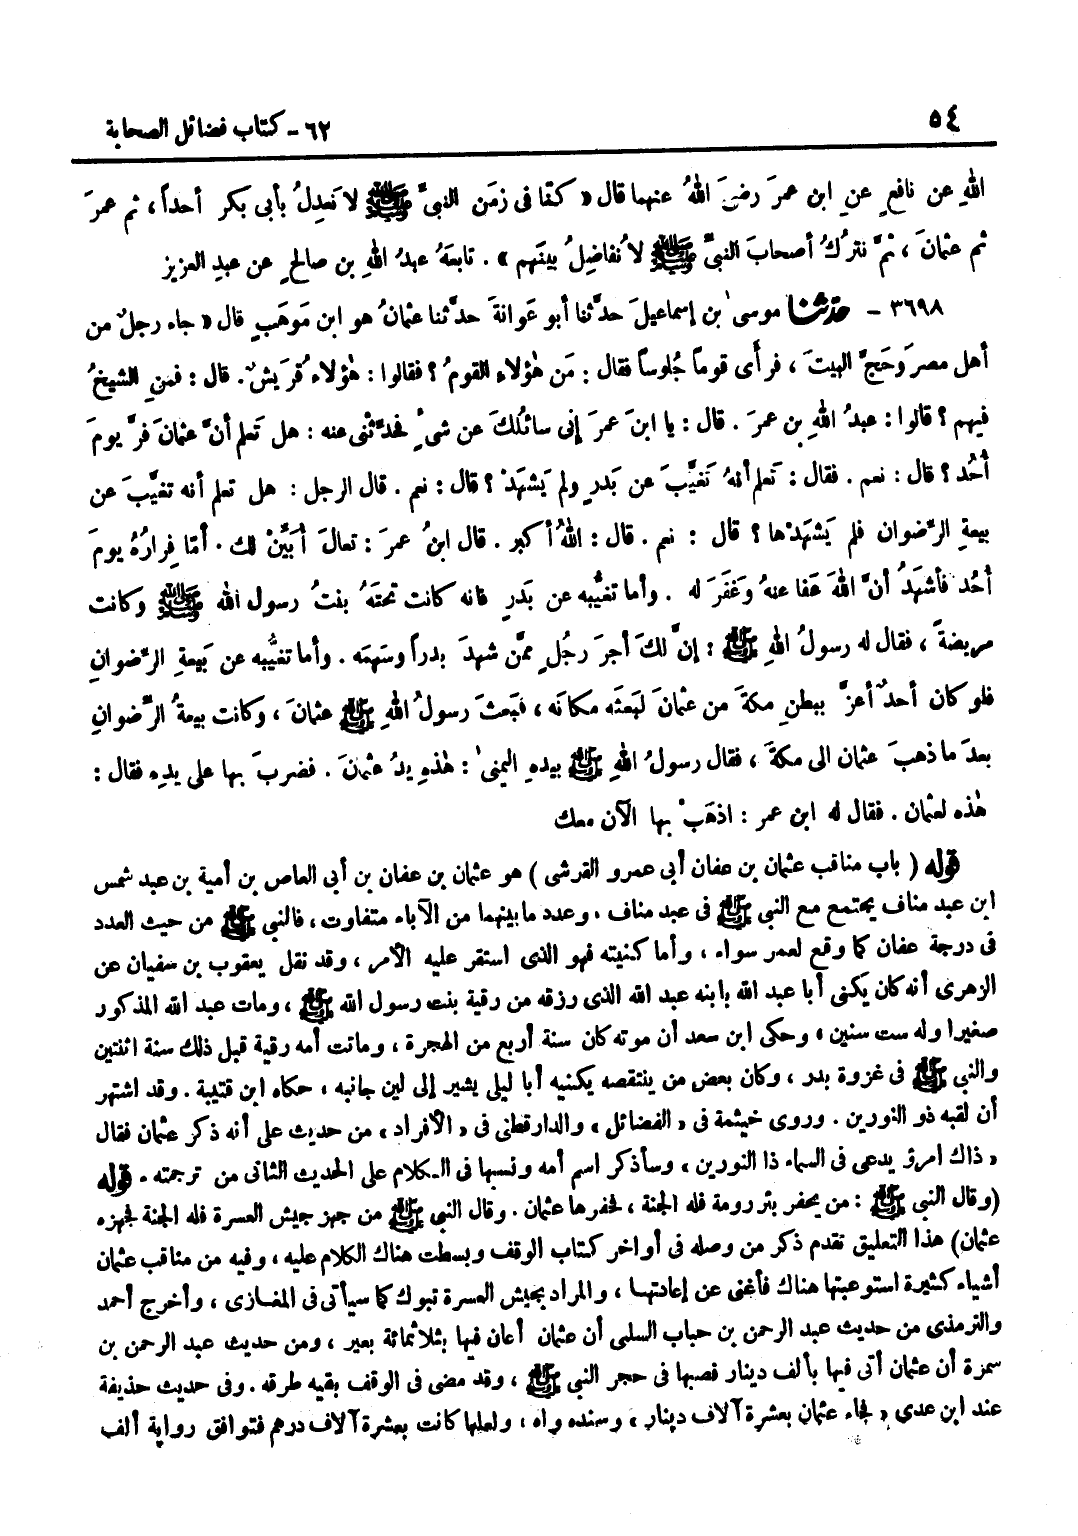 ٥٤
٦٢ - كتاب فضائل الصحابة
اللهِ عن نافعٍ عنِ ابن عمرَ رضىَ اللهُ عنهما قال « كنّا فى زمَن النبىِّ ﷺ لا نَعدِلُ بأبى بكر أحداً ، ثم عمرَ
ثم عثمانَ ، ثمَّ نترُكُ أصحابَ النبىِّ ﷺ لا نُفاضِلُ بينَهم » . تابعَهُ عبدُ اللهِ بن صالحٍ عن عبدِ العزيز
٣٦٩٨ - حدّثنا موسىٰ بن إسماعيلَ حدَّثنا أبو عَوانةَ حدَّثنا عثمانُ هو ابن مَوهَبٍ قال « جاء رجلٌ من
أهل مصرَ وَحَجَّ البيتَ ، فرأَى قوماً جُلوساً فقال : مَن هٰؤلاءِ القومُ ؟ فقالوا : هٰؤلاءِ قُرَيشٌ . قال : فمنِ الشيخُ
فيهم ؟ قالوا : عبدُ اللهِ بن عمرَ . قال : يا ابنَ عمرَ إنى سائلُكَ عن شىءٍ فحدِّثْنى عنه : هل تَعلم أنَّ عثمانَ فرَّ يومَ
أُحُد ؟ قال : نعم . فقال : تَعلم أنهُ تَغيَّبَ عن بَدرٍ ولم يَشهَدْ ؟ قال : نعم . قال الرجل : هل تعلم أنه تغيَّبَ عن
بيعةِ الرِّضوان فلم يَشهَدْها ؟ قال : نعم . قال : اللهُ أكبر . قال ابنُ عمرَ : تعالَ أُبيِّنْ لك . أمّا فِرارُهُ يومَ
أُحُد فأشهَدُ أنَّ اللهَ عَفا عنهُ وَغفَرَ له . وأما تغيُّبه عن بَدرٍ فانه كانت تحتَهُ بنتُ رسول الله ﷺ وكانت
مريضةً ، فقال له رسولُ اللهِ ﷺ : إنَّ لكَ أجرَ رجُلٍ ممَّن شهدَ بدراً وسَهمَه . وأما تغيُّبه عن بَيعةِ الرِّضوانِ
فلو كان أحدٌ أعزَّ ببطنِ مكةَ من عثمانَ لبَعثَه مكانَه ، فبَعثَ رسولُ اللهِ ﷺ عثمانَ ، وكانت بيعةُ الرِّضوانِ
بعدَ ما ذهبَ عثمان الى مكةَ ، فقال رسولُ اللهِ ﷺ بيدهِ اليمنىٰ : هٰذهِ يدُ عثمانَ . فضربَ بها على يدِه فقال :
هٰذه لعثمان . فقال له ابن عمر : اذهَبْ بها الآن معك
قوله ( باب مناقب عثمان بن عفان أبى عمرو القرشى ) هو عثمان بن عفان بن أبى العاص بن أمية بن عبد شمس
ابن عبد مناف يجتمع مع النبي ﷺ فى عبد مناف ، وعدد ما بينهما من الآباء متفاوت ، فالنبي ﷺ من حيث العدد
فى درجة عفان كما وقع لعمر سواء ، وأما كنيته فهو الذى استقر عليه الأمر ، وقد نقل يعقوب بن سفيان عن
الزهرى أنه كان يكنى أبا عبد الله بابنه عبد الله الذى رزقه من رقية بنت رسول الله ﷺ ، ومات عبد الله المذكور
صغيرا وله ست سنين ، وحكى ابن سعد أن موته كان سنة أربع من الهجرة ، وماتت أمه رقية قبل ذلك سنة اثنتين
والنبي ﷺ فى غزوة بدر ، وكان بعض من ينتقصه يكنيه أبا ليلى يشير إلى لين جانبه ، حكاه ابن قتيبة . وقد اشتهر
أن لقبه ذو النورين . وروى خيثمة فى « الفضائل » والدارقطنى فى « الأفراد » من حديث على أنه ذكر عثمان فقال
« ذاك امرؤ يدعى فى السماء ذا النورين » وسأذكر اسم أمه ونسبها فى الكلام على الحديث الثانى من ترجمته . قوله
(وقال النبي ﷺ : من يحفر بئر رومة فله الجنة ، فحفرها عثمان . وقال النبي ﷺ من جهز جيش العسرة فله الجنة فجهزه
عثمان) هذا التعليق تقدم ذكر من وصله فى أواخر كتاب الوقف وبسطت هناك الكلام عليه ، وفيه من مناقب عثمان
أشياء كثيرة استوعبتها هناك فأغنى عن إعادتها ، والمراد بجيش العسرة تبوك كما سيأتى فى المغازى ، وأخرج أحمد
والترمذى من حديث عبد الرحمن بن حباب السلمى أن عثمان أعان فيها بثلاثمائة بعير ، ومن حديث عبد الرحمن بن
سمرة أن عثمان أتى فيها بألف دينار فصبها فى حجر النبي ﷺ ، وقد مضى فى الوقف بقيه طرقه . وفى حديث حذيفة
عند ابن عدى « فجاء عثمان بعشرة آلاف دينار ، وسنده واه ، ولعلها كانت بعشرة آلاف درهم فتوافق رواية ألف